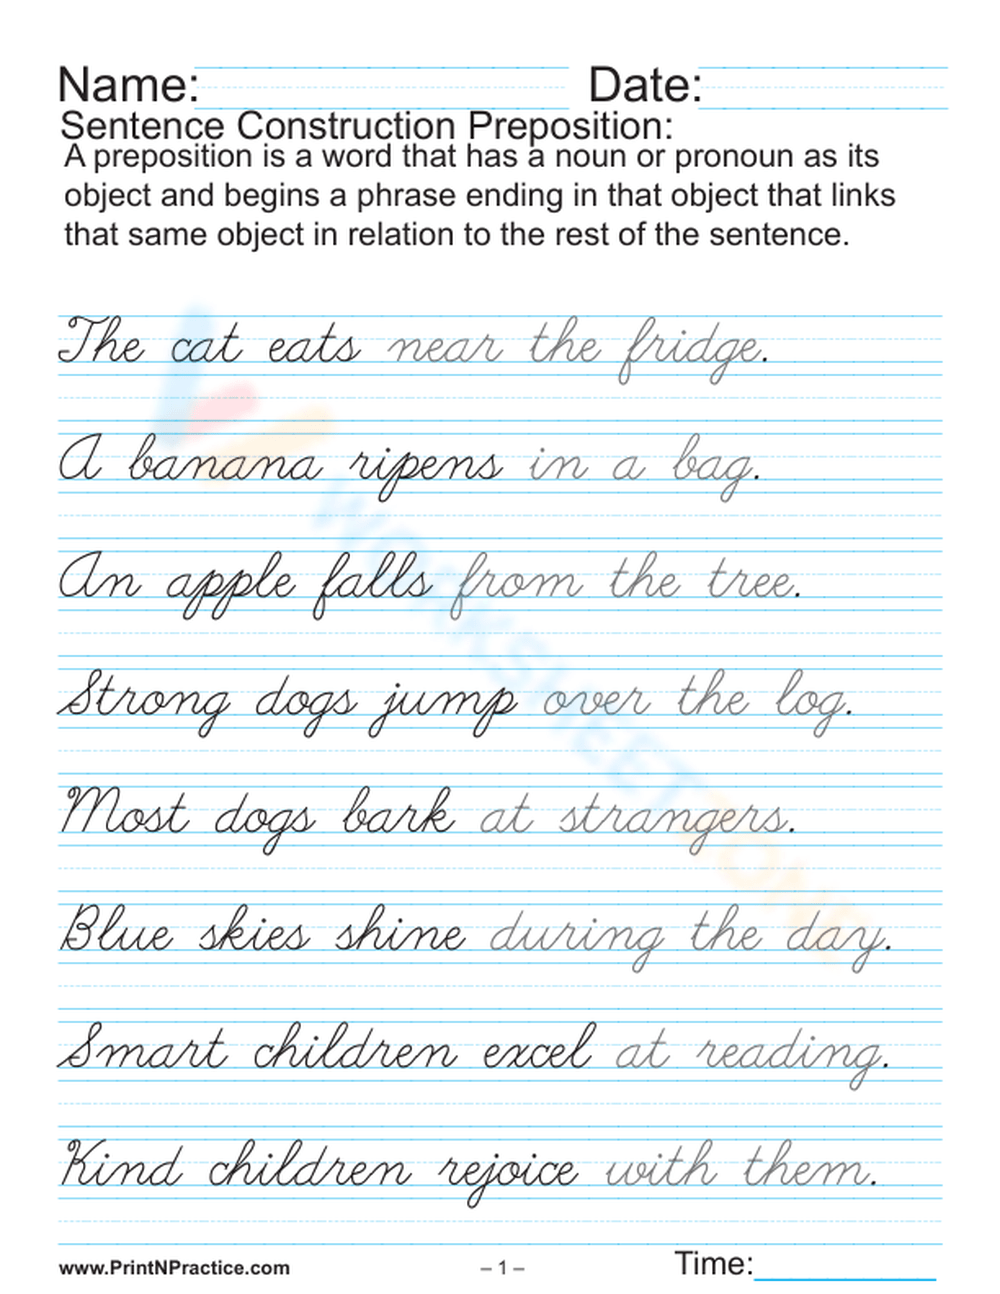 Name: Date:
Sentence Construction Preposition:
A preposition is a word that has a noun or pronoun as its
object and begins a phrase ending in that object that links
that same object in relation to the rest of the sentence.
The cat eats near the fridge.
A banana ripens in a bag.
An apple falls from the tree.
Strong dogs jump over the log.
Most dogs bark at strangers.
Blue skies shine during the day.
Smart children excel at reading.
Kind children rejoice with them.
WORKSHEETZONE
www.PrintNPractice.com – 1 – Time: